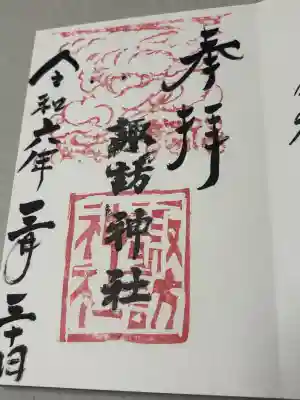 奉拝
諏訪神社
諏訪神社
令和六年三月三十日